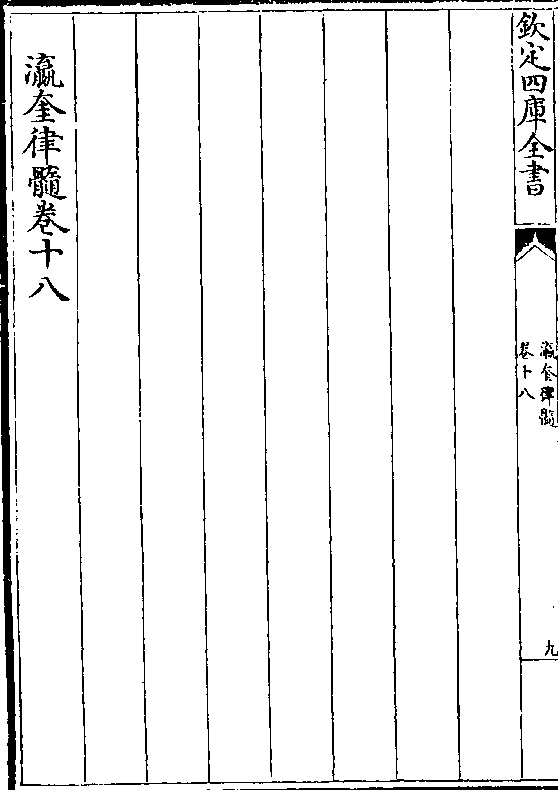 欽定四庫全書
瀛奎律髓
卷十八
九
瀛奎律髓卷十八